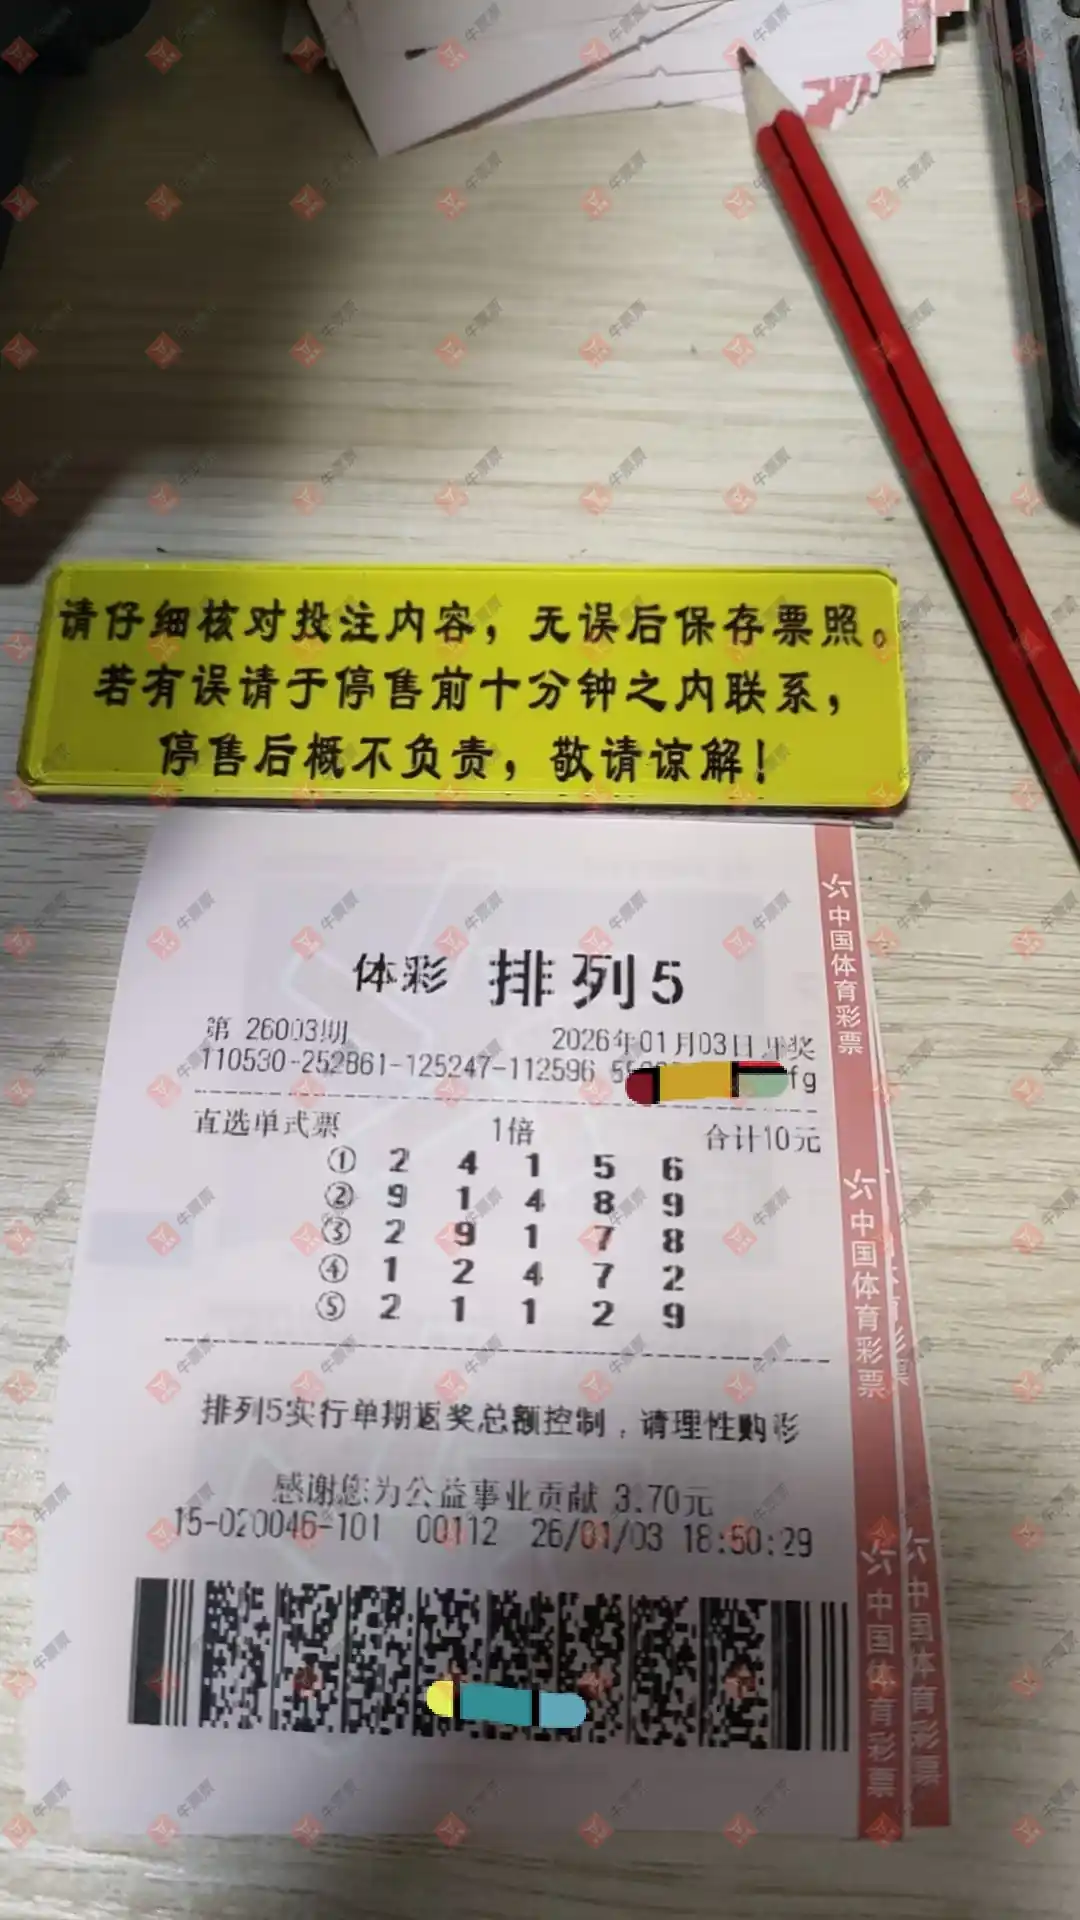 请仔细核对投注内容，无误后保存票照。
若有误请于停售前十分钟之内联系，
停售后概不负责，敬请谅解！
体彩 排列5
第 26003期 2026年01月03日开奖
110530-252861-125247-112596 fg
直选单式票 1倍 合计10元
① 2 4 1 5 6
② 9 1 4 8 9
③ 2 9 1 7 8
④ 1 2 4 7 2
⑤ 2 1 1 2 9
排列5实行单期返奖总额控制，请理性购彩
感谢您为公益事业贡献 3.70元
15-020046-101 00112 26/01/03 18:50:29
中国体育彩票
中国体育彩票
中国体育彩票
中国体育彩票
牛票票